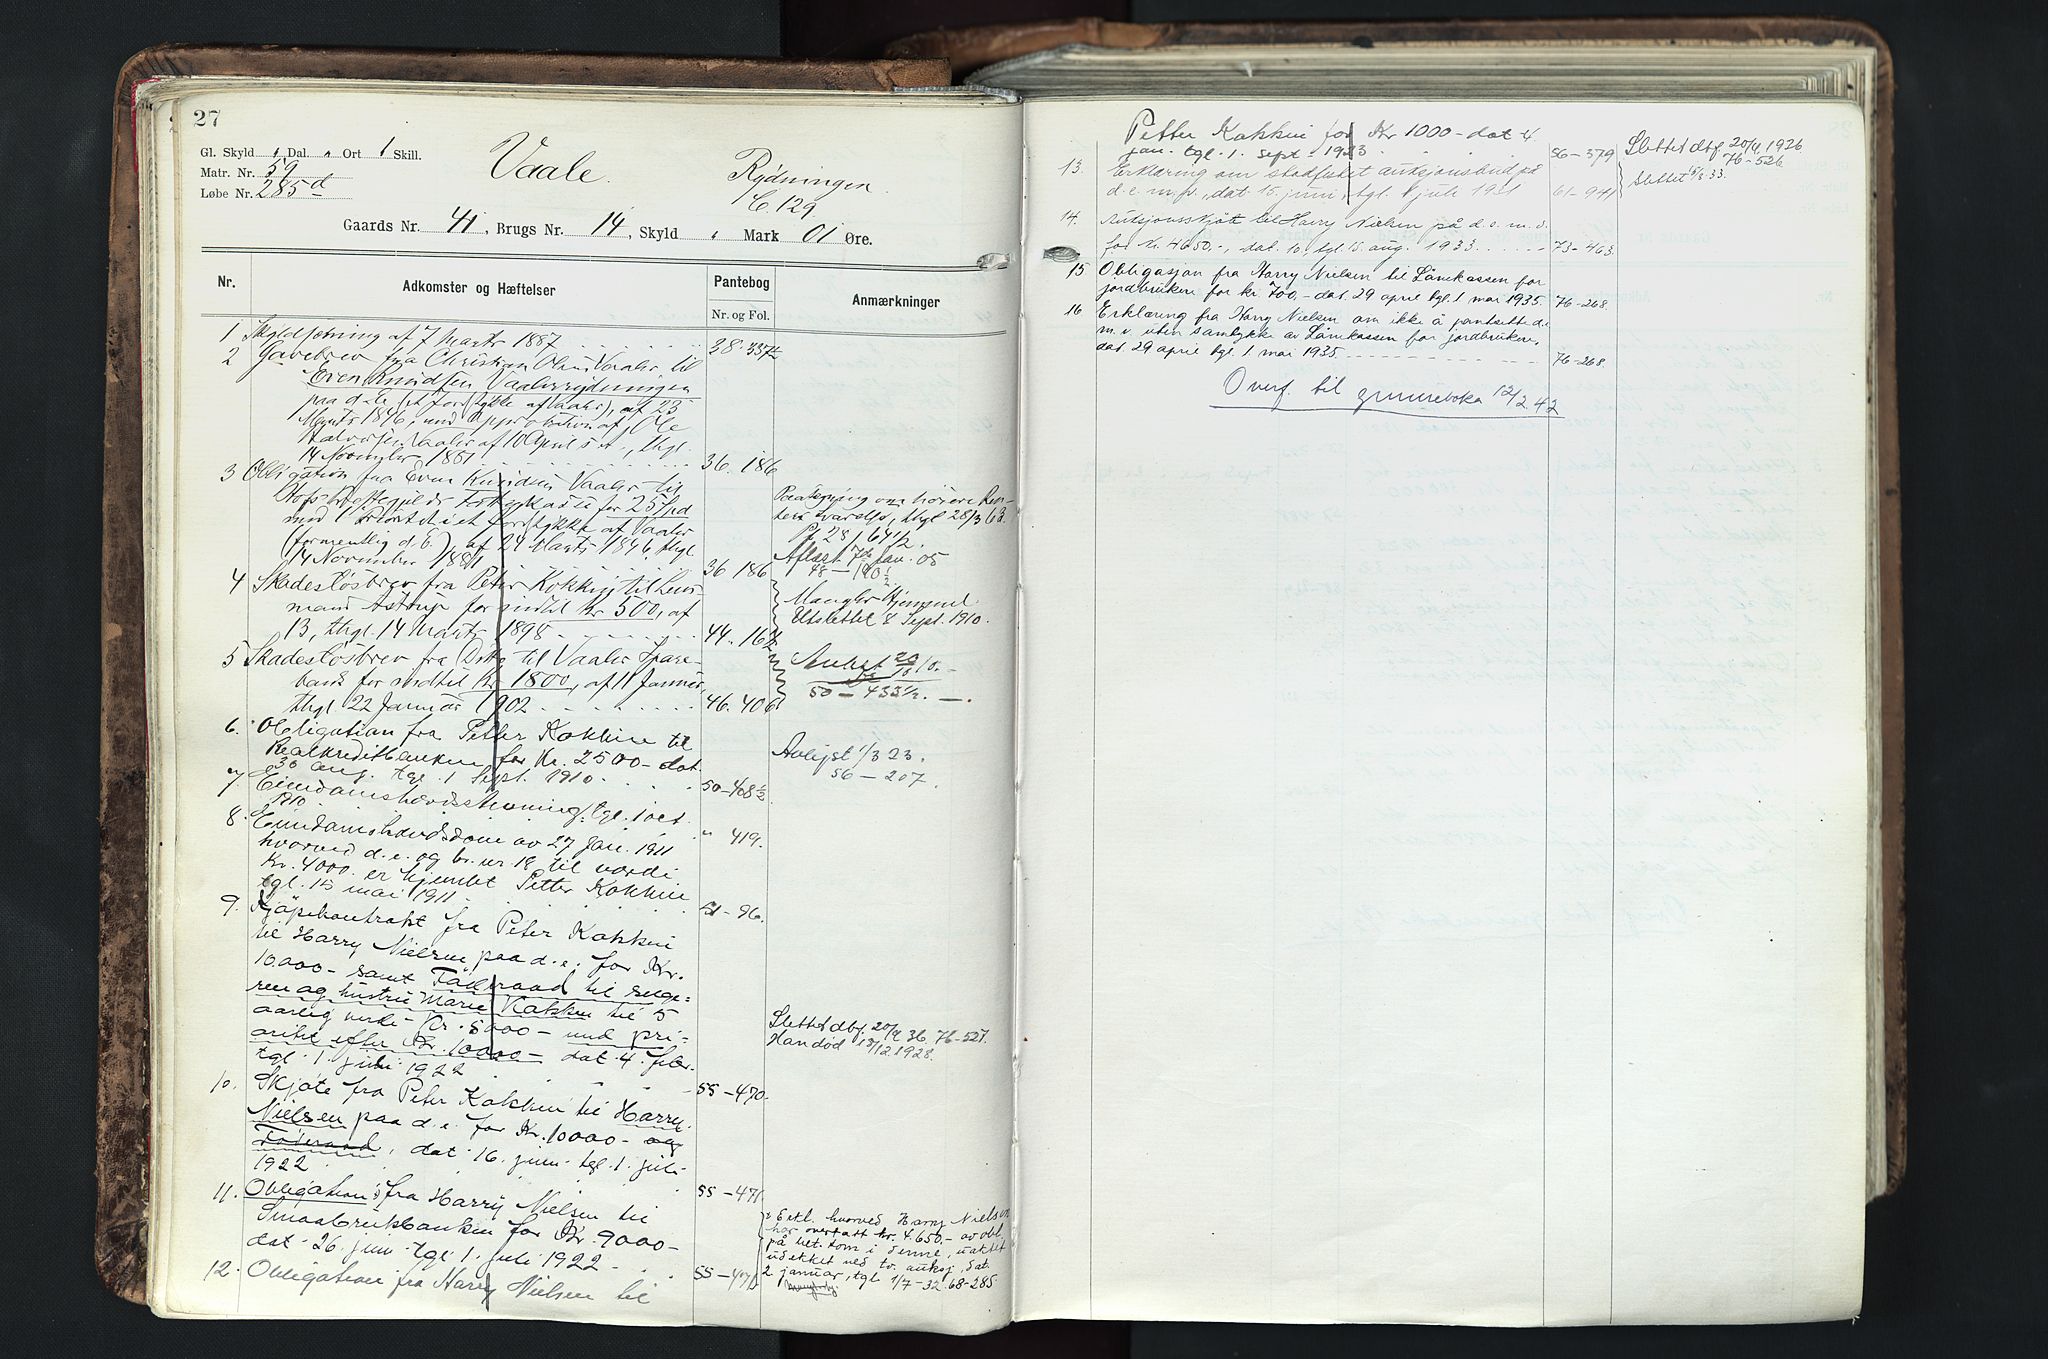 27
Gl. Skyld " Dal. " Ort 1 Skill.
Matr. Nr. 59
Løbe Nr. 285d
Vaale.
Rydningen
C. 129
Gaards Nr. 41, Brugs Nr. 14, Skyld " Mark 01 Øre.
Nr.
Adkomster og Hæftelser
Pantebog
Nr. og Fol.
Anmærkninger
1 Skyldsetning af 7 Marts 1887 38. 337½
2 Gavebrev fra Christian Olsen Vaaler til
Even Knudsen Vaalerrydningen
paa d.e. (et forstykke af Vaaler), af 23
Marts 1846, med Approbation af Ole
Halvorsen Vaaler af 10 April s. a., thgl.
14 November 1881 36. 186
3 Obligation fra Even Knudsen Vaaler til
for 25 Spd
med 1 Prioritet i et forstykke af Vaaler
(formentlig d. E.) af 24 Marts 1846, thgl.
14 November 1881 36 186
Paategning om høiere Ren-
tesvarelse, thgl 28/3 63.
Pr 28, 641½.
Aflæst 7de Jan. 05
48 — 190½
4 Skadesløsbrev fra Peter Kokkin til Lens-
mand Astrup for indtil Kr 500, af
13, thgl. 14 Marts 1898 44. 16½
Mangler Hjemmel.
Udslettet 8 Sept. 1910.
5 Skadesløsbrev fra Do til Vaaler Spare-
bank for indtil Kr 1800, af 11 Januar,
thgl 22 Januar 1902 46. 406
50 — 433½.
6. Obligation fra Petter Kokkin til
Realkreditbanken for Kr. 2500 - dat.
30 aug. tgl. 1 Sept. 1910. 50-408½
Avlyst 1/3 23.
56 — 207.
7. Eiendomshævdsstevning, tgl. 1 oct.
1910. " 419.
8. Eiendomshævdsdom av 27 jan. 1911
hvorved d.e. og br. nr 19, til værdi
Kr. 4000. er hjemlet Petter Kokkin
tgl. 15 mai 1911. 51-96.
9. Kjøpekontrakt fra Peter Kokkin
til Harry Nielsen paa d.e. for Kr.
10.000 - samt Føderaad til sælge-
ren og hustru Marie Kokkin til 5
aarlig verdi - Kr. 5000 - med pri-
oritet efter Kr. 10000 - dat 4. febr.
tgl. 1. juli 1922 55-470.
Slettet dbf. 20/4 36. 76-527.
Han død 13/12 1928.
10. Skjøte fra Peter Kokkin til Harry
Nielsen paa d.e. for Kr. 10000 - og
Føderaad, dat 16. juni tgl. 1. juli
1922 55-471.
11. Obligation fra Harry Nielsen til
Smaabrukbanken for Kr. 9000 -
dat 26. juni tgl. 1. juli 1922
hvorved Harry Nielsen
har overtatt kr. 4.650.- av obl.
på bet. som i denne, uaktet
udekket ved tv. auksj., dat.
2 januar, tgl 1/7-32. 68-285.
12. Obligation fra Harry Nielsen til
Petter Kokkin for Kr 1000 - dat 4
jan. tgl. 1. sept. 1923 56-379
Slettet dbf 20/4 1926
76-526
13. Erklæring om stadfestet auksjonsbud på
d.e. m.fl., dat 15. juni, tgl. 1 juli 1931 61-941
Slettet 15/8.33.
14. Auksjonsskjøte til Harry Nielsen på d.e. m. d.
for kr. 4650.-, dat. 10, tgl. 15. aug. 1933 73-463.
15 Obligasjon fra Harry Nielsen til Lånekassen for
jordbrukere for kr. 700.- dat. 29 april tgl. 1 mai 1935. 76-268.
16 Erklæring fra Harry Nielsen om ikke å pantsette d.e.
m. v. uten samtykke av Lånekassen for jordbrukere,
dat. 29 april tgl. 1 mai 1935. 76-268.
Overf. til grunnboka 12/2.42